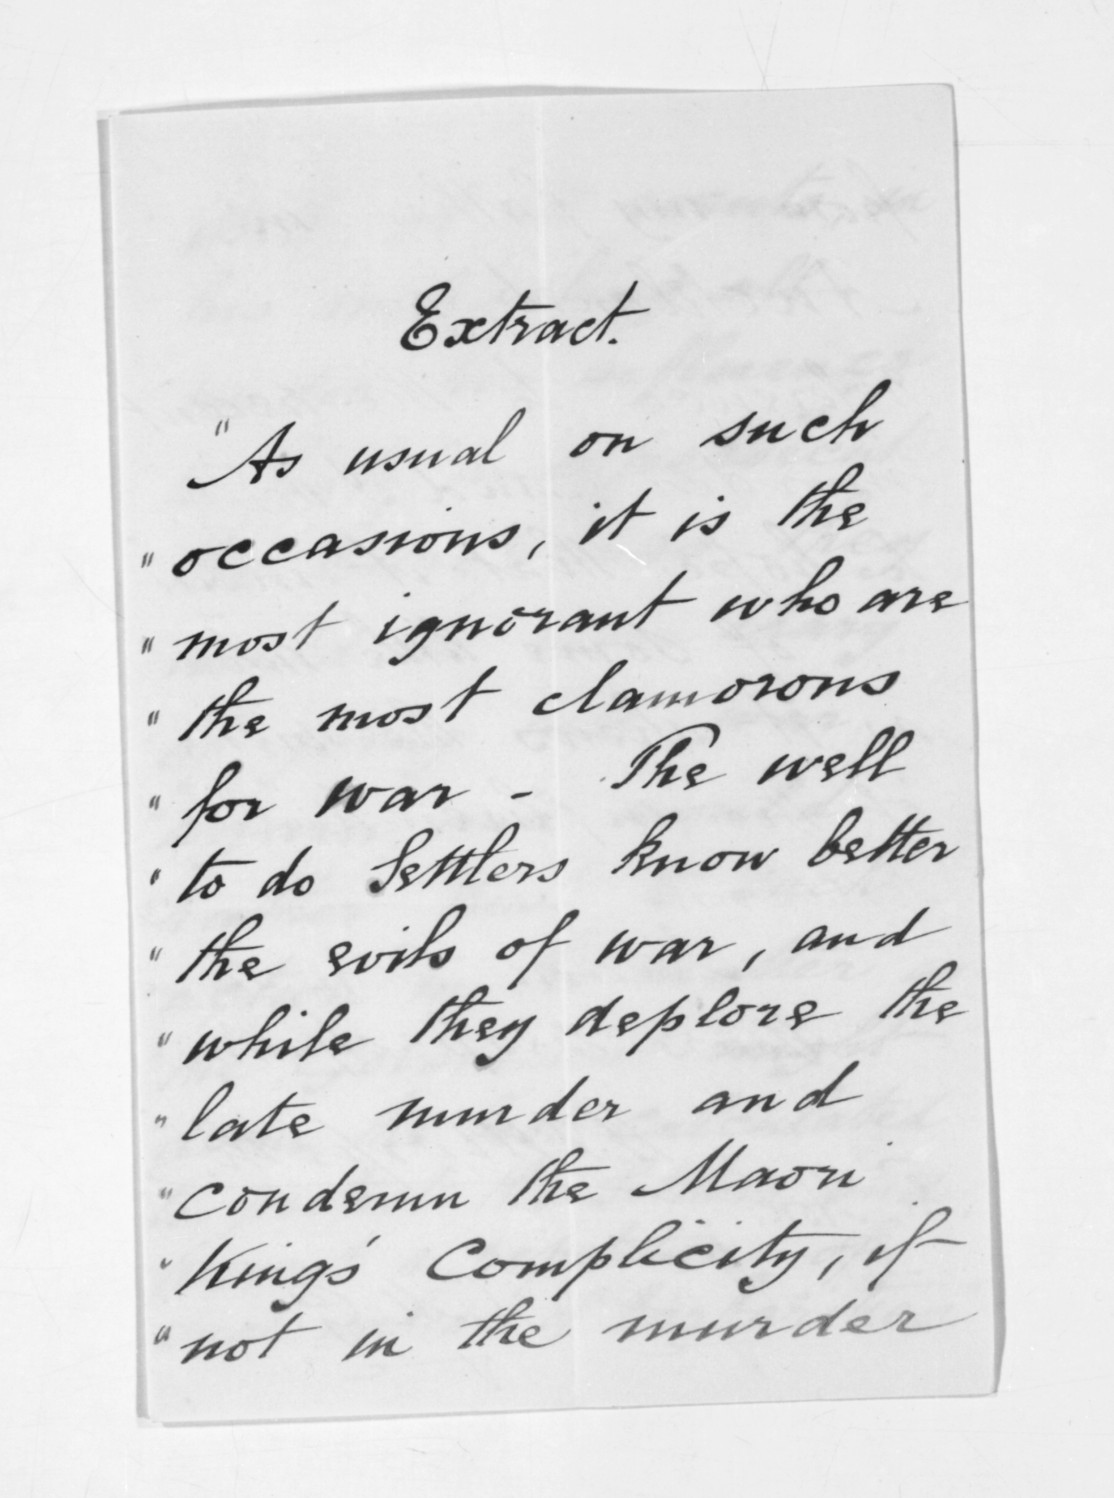 Extract.
"As usual on such
" occasions, it is the
" most ignorant who are
" the most clamorous
" for war - The well
" to do Settlers know better
" the evils of war, and
" while they deplore the
" late murder and
" condemn the Maori
" King's Complicity, if
" not in the murder